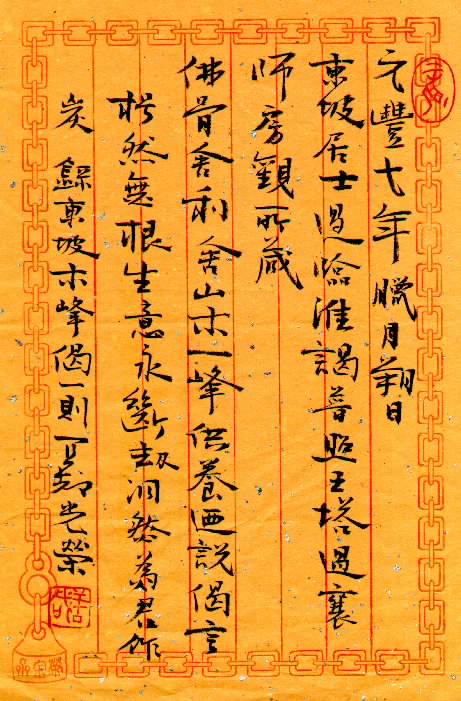 元豐七年臘月朔日
東坡居士過臨淮謁普照王塔過襄
師房觀所藏
佛骨舍利舍山木一峰供養迺說偈言
枯然無根生意永斷劫洞然為君作
炭 錄東坡木峰偈一則 光榮